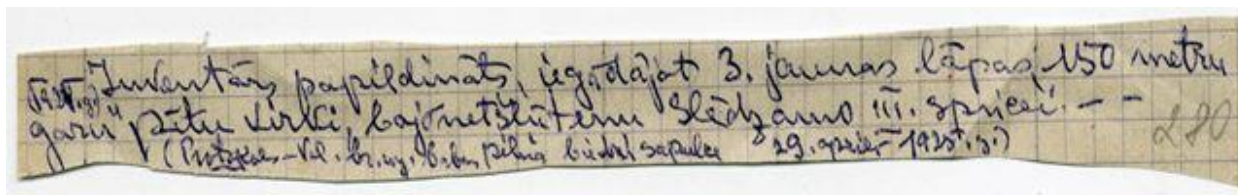 Inventārs papildināts, iegādājot 3. jaunas lāpas, 150 metru
garu pītu virvi, bajonetšļūteņu slēdzamo III. spricei. — —
(Protokols - Vol. br. ug. b. ben. pilnā biedru sapulce 29. aprīlī 1925. g.)
280